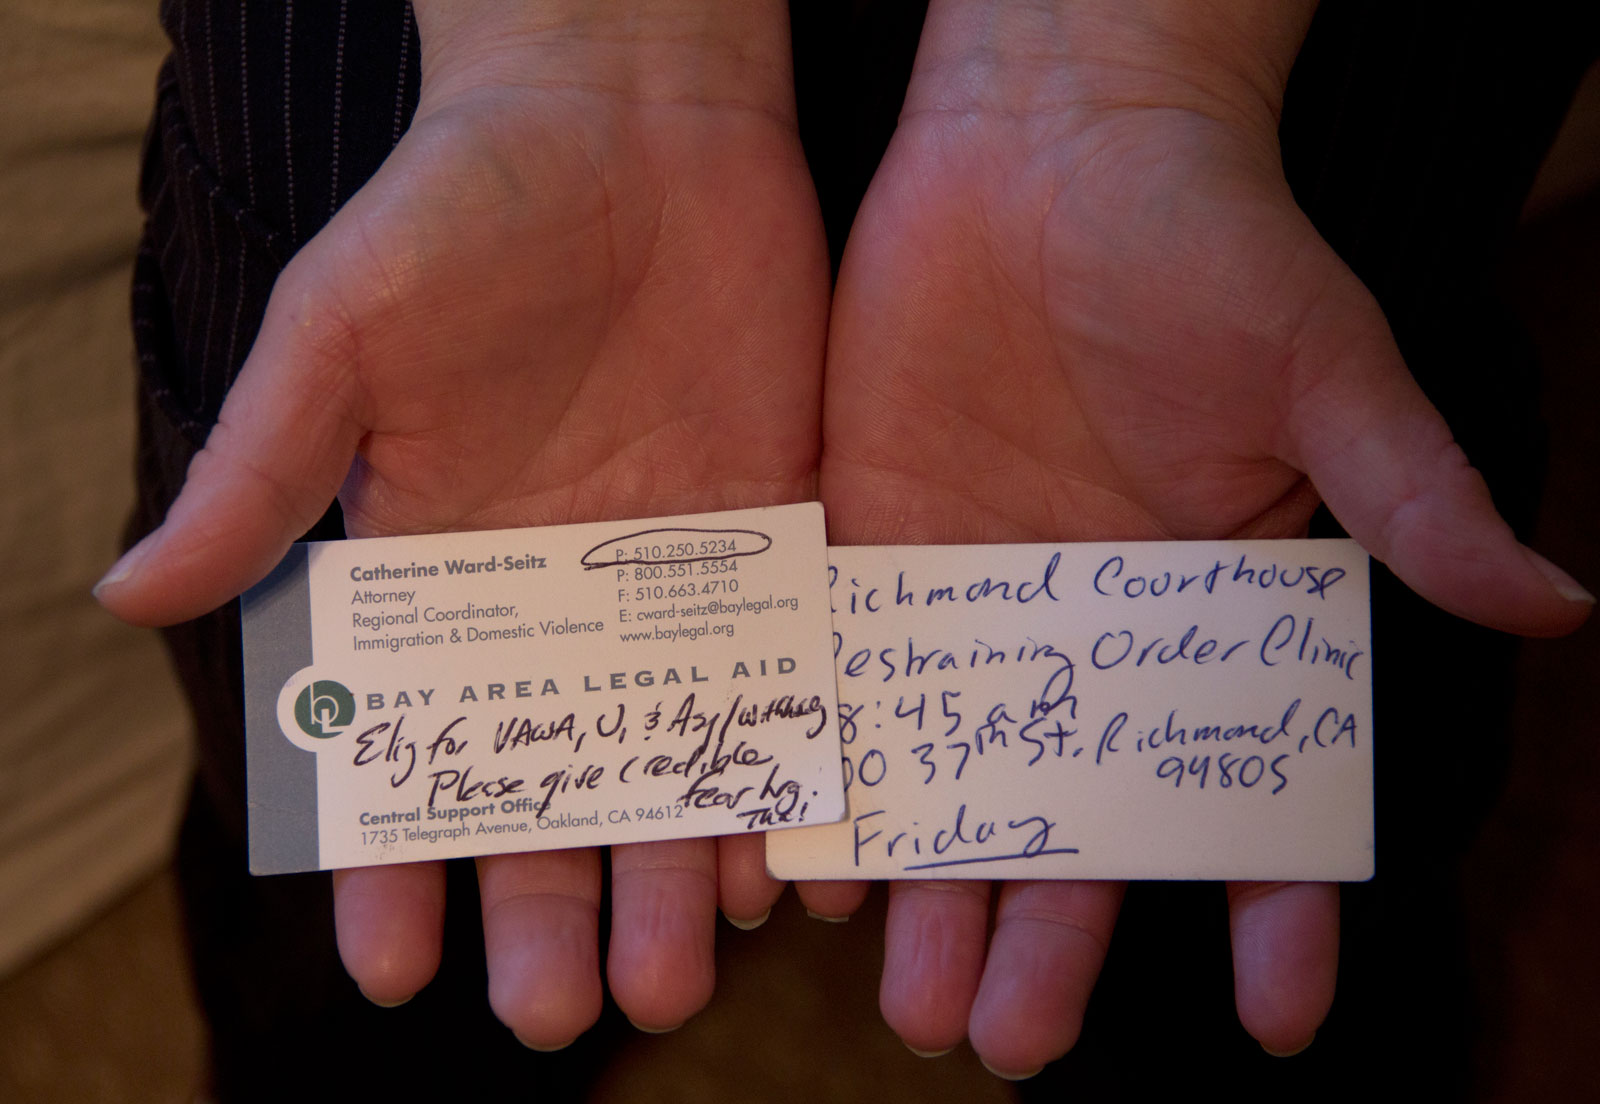 Catherine Ward-Seitz
Attorney
Regional Coordinator,
Immigration & Domestic Violence
P: 510.250.5234
P: 800.551.5554
F: 510.663.4710
E: cward-seitz@baylegal.org
www.baylegal.org
BAY AREA LEGAL AID
Elig for VAWA, U, & Asy/withhg
Please give credible
fear hrg.
Thx!
Central Support Office
1735 Telegraph Avenue, Oakland, CA 94612
Richmond Courthouse
Restraining Order Clinic
8:45 am
00 37th St. Richmond, CA
94805
Friday